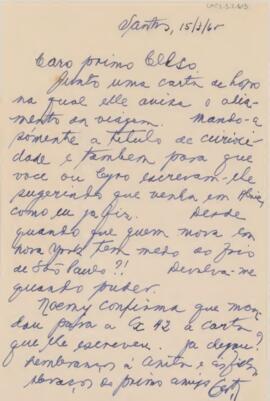 Santos, 15/3/65
Caro primo Celso
Junto uma carta de
na qual elle avisa o adia-
mento da viagem. Mando-a
sómente a titulo de curiosi-
dade e tambem para que
você ou Cyro escrevam-lhe
sugerindo que venha em
como eu já fiz. Desde
quando que quem mora em
Nova York tem medo do frio
de São Paulo?! Devolva-me
quando puder.
Noemy confirma que man-
dou para a Cx 42 a carta
que lhe escreveu. Já chegou?
Lembranças à Anita e
abraços do primo amigo